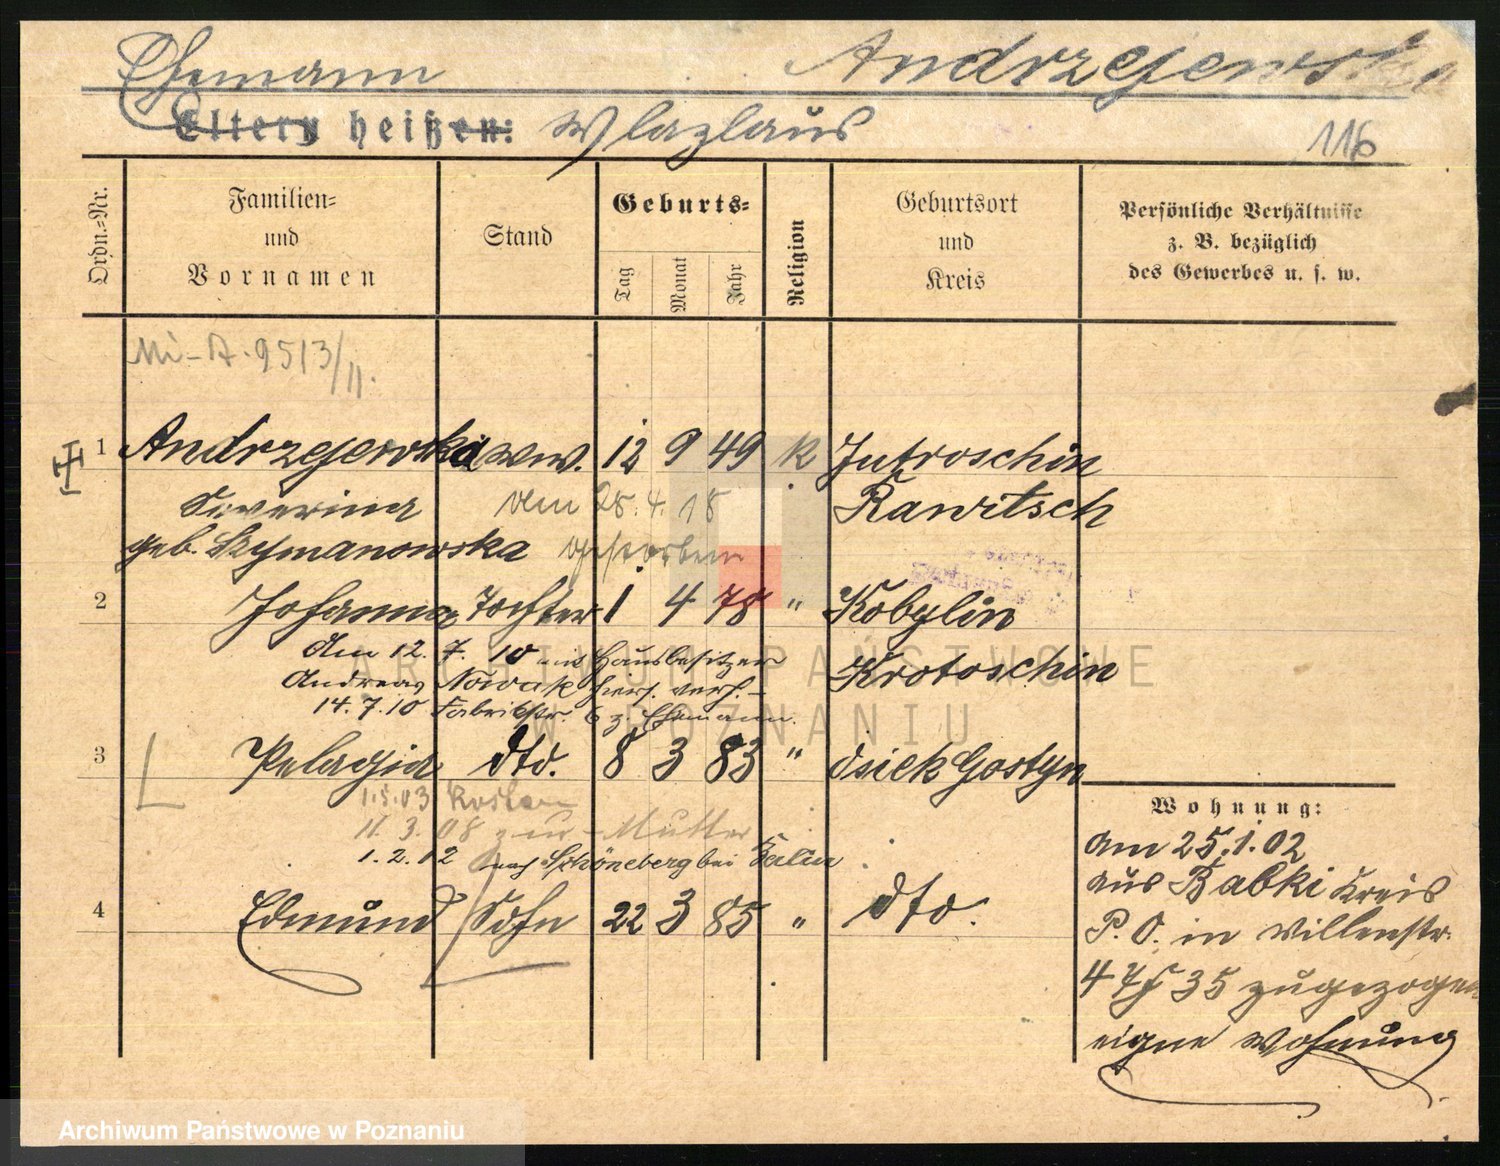 Ehemann Andrzejewska
Eltern heißen: Wlazlaus 116
Ordn.-Nr.
Familien-
und
Vornamen
Stand
Geburts-
Tag
Monat
Jahr
Religion
Geburtsort
und
Kreis
Persönliche Verhältnisse
z. B. bezüglich
des Gewerbes u. s. w.
Mi-A. 9513/11.
1 Andrzejewska Ww. 12 9 49 k Jutroschin
Severina am 28. 4. 18 Rawitsch
geb. Szymanowska gestorben
2 Johanna Tochter 1 4 78 " Kobylin
Am 12. 7. 10 mit Hausbesitzer Krotoschin
Andreas Nowak hers. verh.
14.7.10 Fabrikstr. 6 z. Ehemann.
3 Pelagia dto. 8 3 83 " Gostyn
1.5.03
11. 3. 08 zur Mutter
1. 2. 12 nach Schöneberg bei Berlin
4 Edmund Sohn 22 3 85 " dto.
Wohnung:
am 25.1.02
aus Babki Kreis
P. O. in Villenstr.
4 35 zugezogen
eigne Wohnung
ARCHIWUM PAŃSTWOWE
W POZNANIU
Archiwum Państwowe w Poznaniu